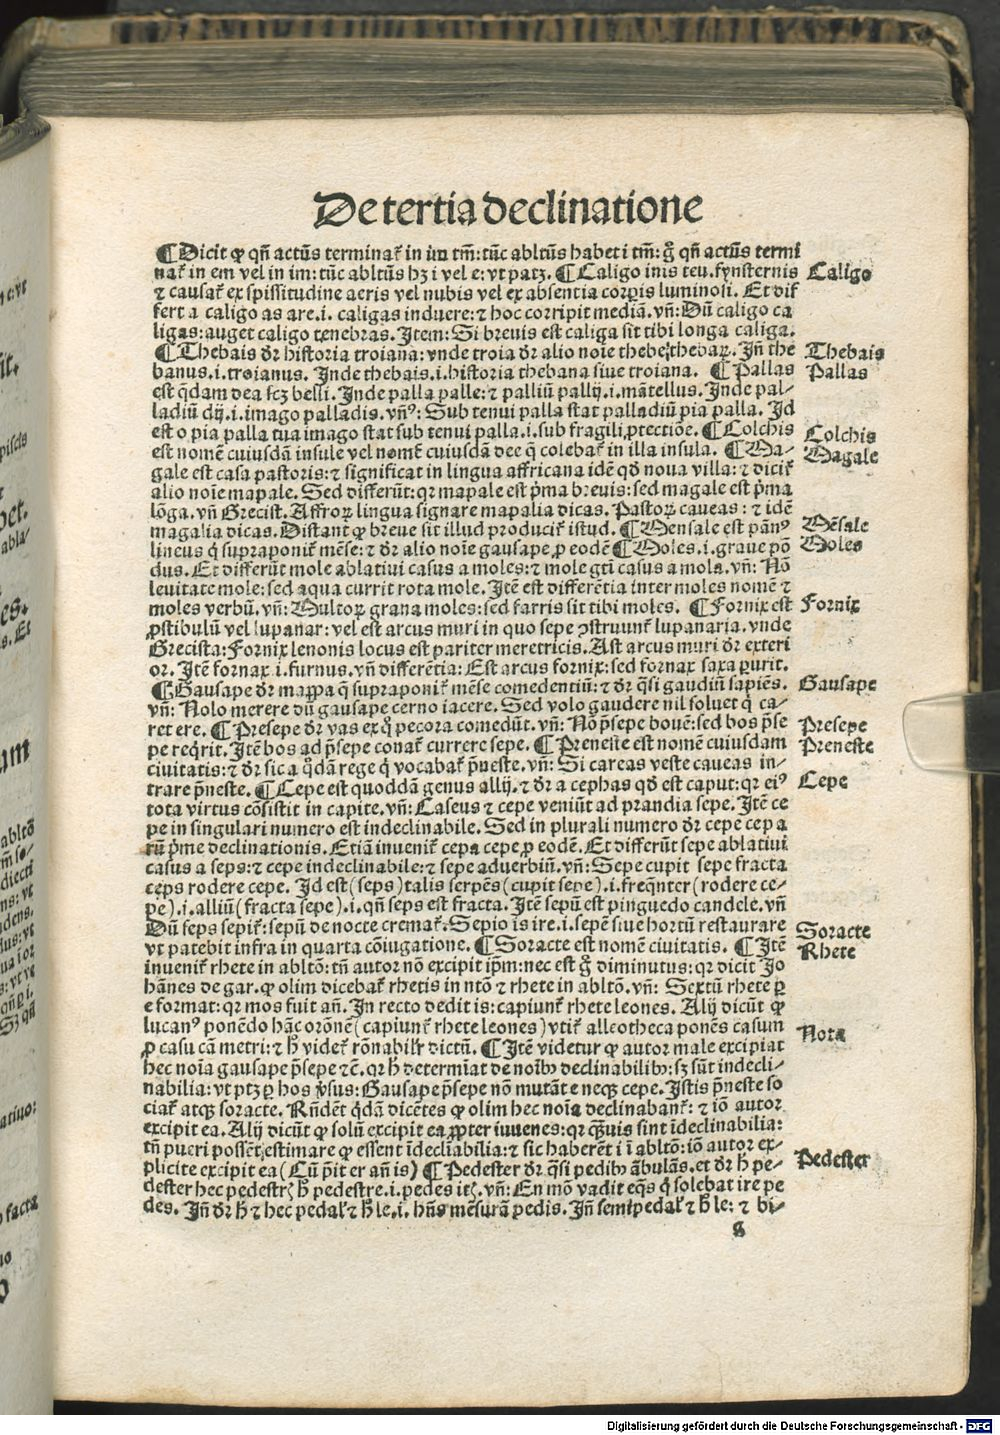 De tertia declinatione
¶Dicit ꝙ qñ actūs terminat᷑ in im tm̄: tūc abltūs habet i tm̄: g̊ qñ actūs termi
nat᷑ in em vel in im: tūc abltūs hꝫ i vel e: vt patꝫ. ¶Caligo inis teu. fynsternis
Caligo
⁊ causat᷑ ex spissitudine aeris vel nubis vel ex absentia corpis luminosi. Et dif
fert a caligo as are .i. caligas induere: ⁊ hoc corripit mediā. vñ: Dū caligo ca
ligas: auget caligo tenebras. Item: Si breuis est caliga sit tibi longa caliga.
¶Thebais dr̄ historia troiana: vnde troia dr̄ alio noie thebe: thebaꝝ. Iñ the
Thebais
banus .i. troianus. Inde thebais .i. historia thebana siue troiana. ¶Pallas
Pallas
est q̄dam dea scꝫ belli. Inde palla palle: ⁊ palliū pallij .i. mātellus. Inde pal-
ladiū dij .i. imago palladis. vñ: Sub tenui palla stat palladiū pia palla. Id
est o pia palla tua imago stat sub tenui palla .i. sub fragili ꝓtectiōe. ¶Colchis
Colchis
est nomē cuiusdā insule vel nomē cuiusdā dee q̄ colebat᷑ in illa insula. ¶Ma-
Magale
gale est casa pastoris: ⁊ significat in lingua affricana idē qd̄ noua villa: ⁊ dicit᷑
alio noie mapale. Sed differūt: qr mapale est p̄ma breuis: sed magale est p̄ma
lōga. vñ Grecist. Affroꝝ lingua signare mapalia dicas. Pastoꝝ caueas: ⁊ idē
magalia dicas. Distant ꝙ breue sit illud producit᷑ istud. ¶Mensale est pānꝰ
Mēsale
lineus q̇ supraponit᷑ mēse: ⁊ dr̄ alio noie gausape ꝓ eodē ¶Moles .i. graue pō
Moles
dus. Et differūt mole ablatiui casus a moles: ⁊ mole gti casus a mola. vñ: Nō
leuitate mole: sed aqua currit rota mole. Itē est differētia inter moles nomē ⁊
moles verbū. vñ: Multoꝝ grana moles: sed farris sit tibi moles. ¶Fornix est
Fornix
ꝓstibulū vel lupanar: vel est arcus muri in quo sepe ꝯstruunt᷑ lupanaria. vnde
Grecista: Fornix lenonis locus est pariter meretricis. Ast arcus muri dr̄ exteri
or. Itē fornax .i. furnus. vñ differētia: Est arcus fornix: sed fornax saxa ꝑurit.
¶Gausape dr̄ mappa q̄ supraponit᷑ mēse comedentiū: ⁊ dr̄ q̄si gaudiū sapiēs.
Gausape
vñ: Nolo merere dū gausape cerno iacere. Sed volo gaudere nil soluet q̇ ca-
ret ere. ¶Presepe dr̄ vas ex q̊ pecora comedūt. vñ: Nō p̄sepe bouē: sed bos p̄se
Presepe
pe reqrit. Itē bos ad p̄sepe conat᷑ currere sepe. ¶Preneste est nomē cuiusdam
Preneste
ciuitatis: ⁊ dr̄ sic a q̊dā rege q̇ vocabat᷑ p̄neste. vñ: Si careas veste caueas in-
trare p̄neste. ¶Cepe est quoddā genus allij: ⁊ dr̄ a cephas qd̄ est caput: qr eiꝰ
Cepe
tota virtus cōsistit in capite. vñ: Caseus ⁊ cepe veniūt ad prandia sepe. Itē ce
pe in singulari numero est indeclinabile. Sed in plurali numero dr̄ cepe cepa
rū p̄me declinationis. Etiā inuenit᷑ cepa cepe ꝓ eodē. Et differūt sepe ablatiui
casus a seps: ⁊ cepe indeclinabile: ⁊ sepe aduerbiū. vñ: Sepe cupit sepe fracta
ceps rodere cepe. Id est (seps) talis serpēs (cupit sepe) .i. freqnter (rodere ce-
pe) .i. alliū (fracta sepe) .i. qñ seps est fracta. Itē sepū est pinguedo candele. vñ
Dū seps sepit᷑: sepū de nocte cremat᷑. Sepio is ire .i. sepē siue hortū restaurare
Soracte
vt patebit infra in quarta cōiugatione. ¶Soracte est nomē ciuitatis. ¶Itē
Rhete
inuenit᷑ rhete in abltō: tñ autor nō excipit ipm: nec est g̊ diminutus: qr dicit Io
hānes de gar. ꝙ olim dicebat᷑ rhetis in ntō ⁊ rhete in abltō. vñ: Sextū rhete ꝑ
e format: qr mos fuit añ. In recto dedit is: capiunt᷑ rhete leones. Alij dicūt ꝙ
lucanꝰ ponēdo hāc orōnē (capiunt᷑ rhete leones) vtit᷑ alleotheca ponēs casum
Nota
ꝓ casu cā metri: ⁊ h̄ videt᷑ rōnabilr dictū. ¶Itē videtur ꝙ autor male excipiat
hec noia gausape p̄sepe ⁊c̄. qr h̄ determīat de noibꝰ declinabilibꝰ: sꝫ sūt indecli-
nabilia: vt ptꝫ ꝑ hos v̄sus: Gausape p̄sepe nō mutāt e neqꝫ cepe. Istis p̄neste so
ciat᷑ atqꝫ soracte. Rñdēt q̇dā dicētes ꝙ olim hec noia declinabant᷑: ⁊ iō autor
excipit ea. Alij dicūt ꝙ solū excipit ea ꝓpter iuuenes: qr q̄uis sint īdeclinabilia:
tñ pueri possēt estimare ꝙ essent īdecliabilia: ⁊ sic haberēt i ī abltō: iō autor ex-
plicite excipit ea (Cū p̄it er añ is) ¶Pedester dr̄ q̄si pedibꝰ ābulās. et dr̄ h̄ pe-
Pedester
dester hec pedestrꝫ h̄ pedestre .i. pedes itꝫ. vñ: En mō vadit eq̄s q̇ solebat ire pe
des. Iñ dr̄ h̄ ⁊ hec pedal' ⁊ h̄ le .i. hñs mēsurā pedis. Iñ semipedal' ⁊ h̄ le: ⁊ bi-
s